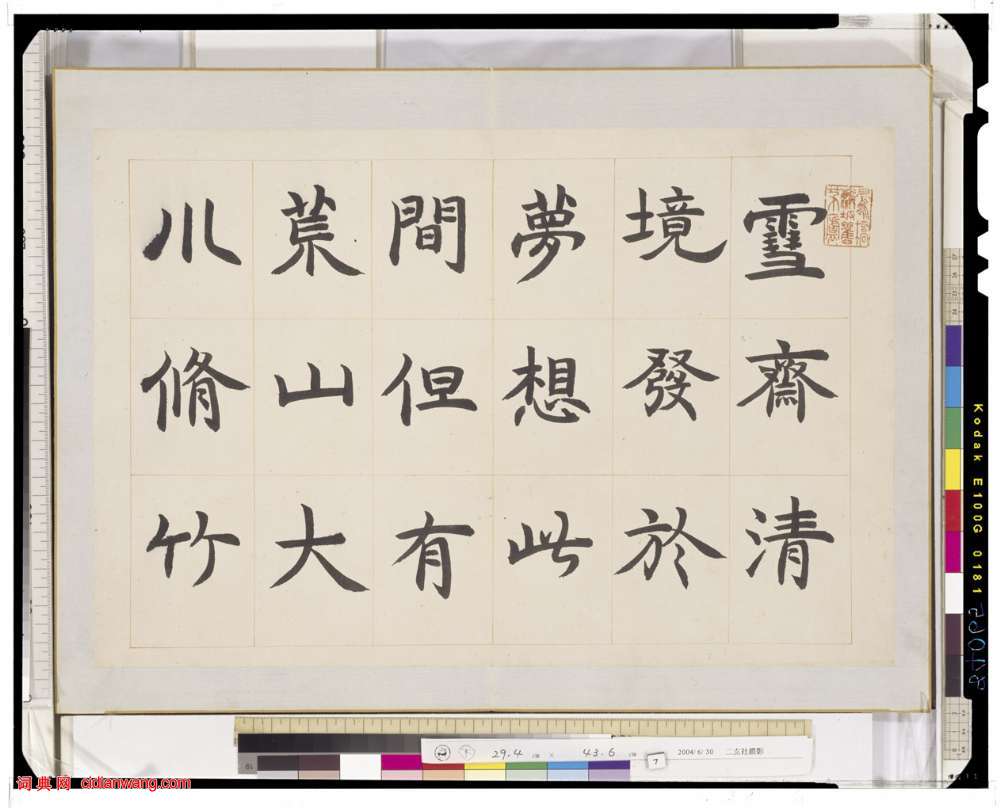 雪齋清
境發於
夢想此
間但有
荒山大
川脩竹
Kodak E100G 0181
29.4 cm × 43.6 cm
7
2004/6/30 二玄社撮影
词典网 cidianwang.com